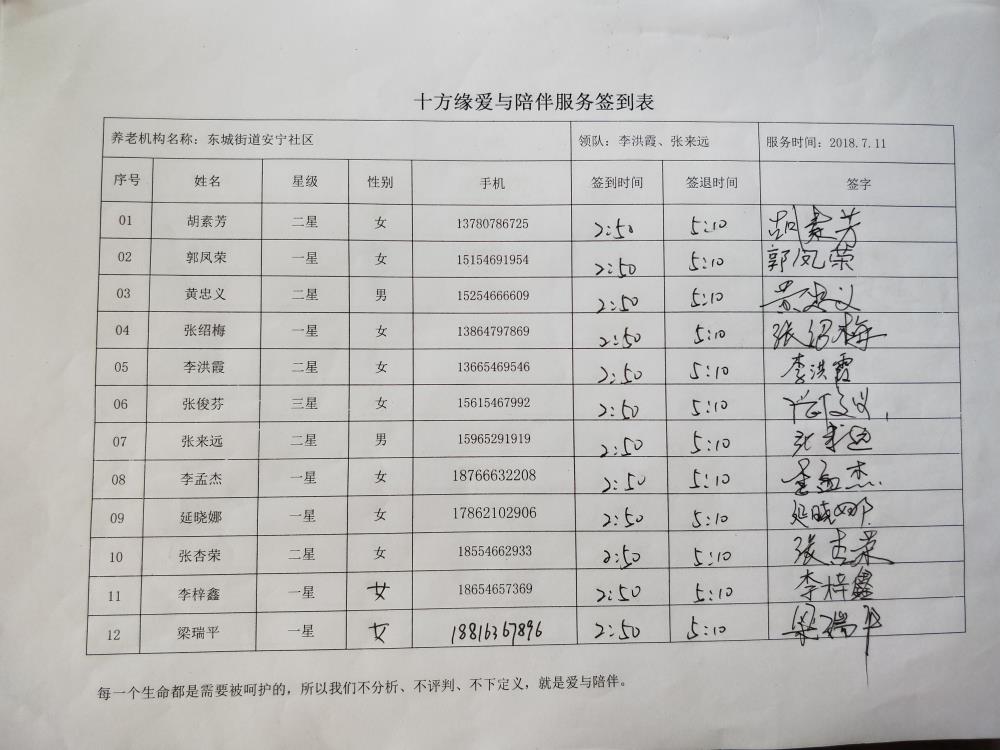 十方缘爱与陪伴服务签到表
养老机构名称：东城街道安宁社区 领队：李洪霞、张来远 服务时间：2018.7.11
序号 姓名 星级 性别 手机 签到时间 签退时间 签字
01 胡素芳 二星 女 13780786725 2:50 5:10 胡素芳
02 郭凤荣 一星 女 15154691954 2:50 5:10 郭凤荣
03 黄忠义 二星 男 15254666609 2:50 5:10 黄忠义
04 张绍梅 一星 女 13864797869 2:50 5:10 张绍梅
05 李洪霞 二星 女 13665469546 2:50 5:10 李洪霞
06 张俊芬 三星 女 15615467992 2:50 5:10
07 张来远 二星 男 15965291919 2:50 5:10 张来远
08 李孟杰 一星 女 18766632208 2:50 5:10 李孟杰
09 延晓娜 一星 女 17862102906 2:50 5:10 延晓娜
10 张杏荣 二星 女 18554662933 2:50 5:10 张杏荣
11 李梓鑫 一星 女 18654657369 2:50 5:10 李梓鑫
12 梁瑞平 一星 女 18816367896 2:50 5:10 梁瑞平
每一个生命都是需要被呵护的，所以我们不分析、不评判、不下定义，就是爱与陪伴。